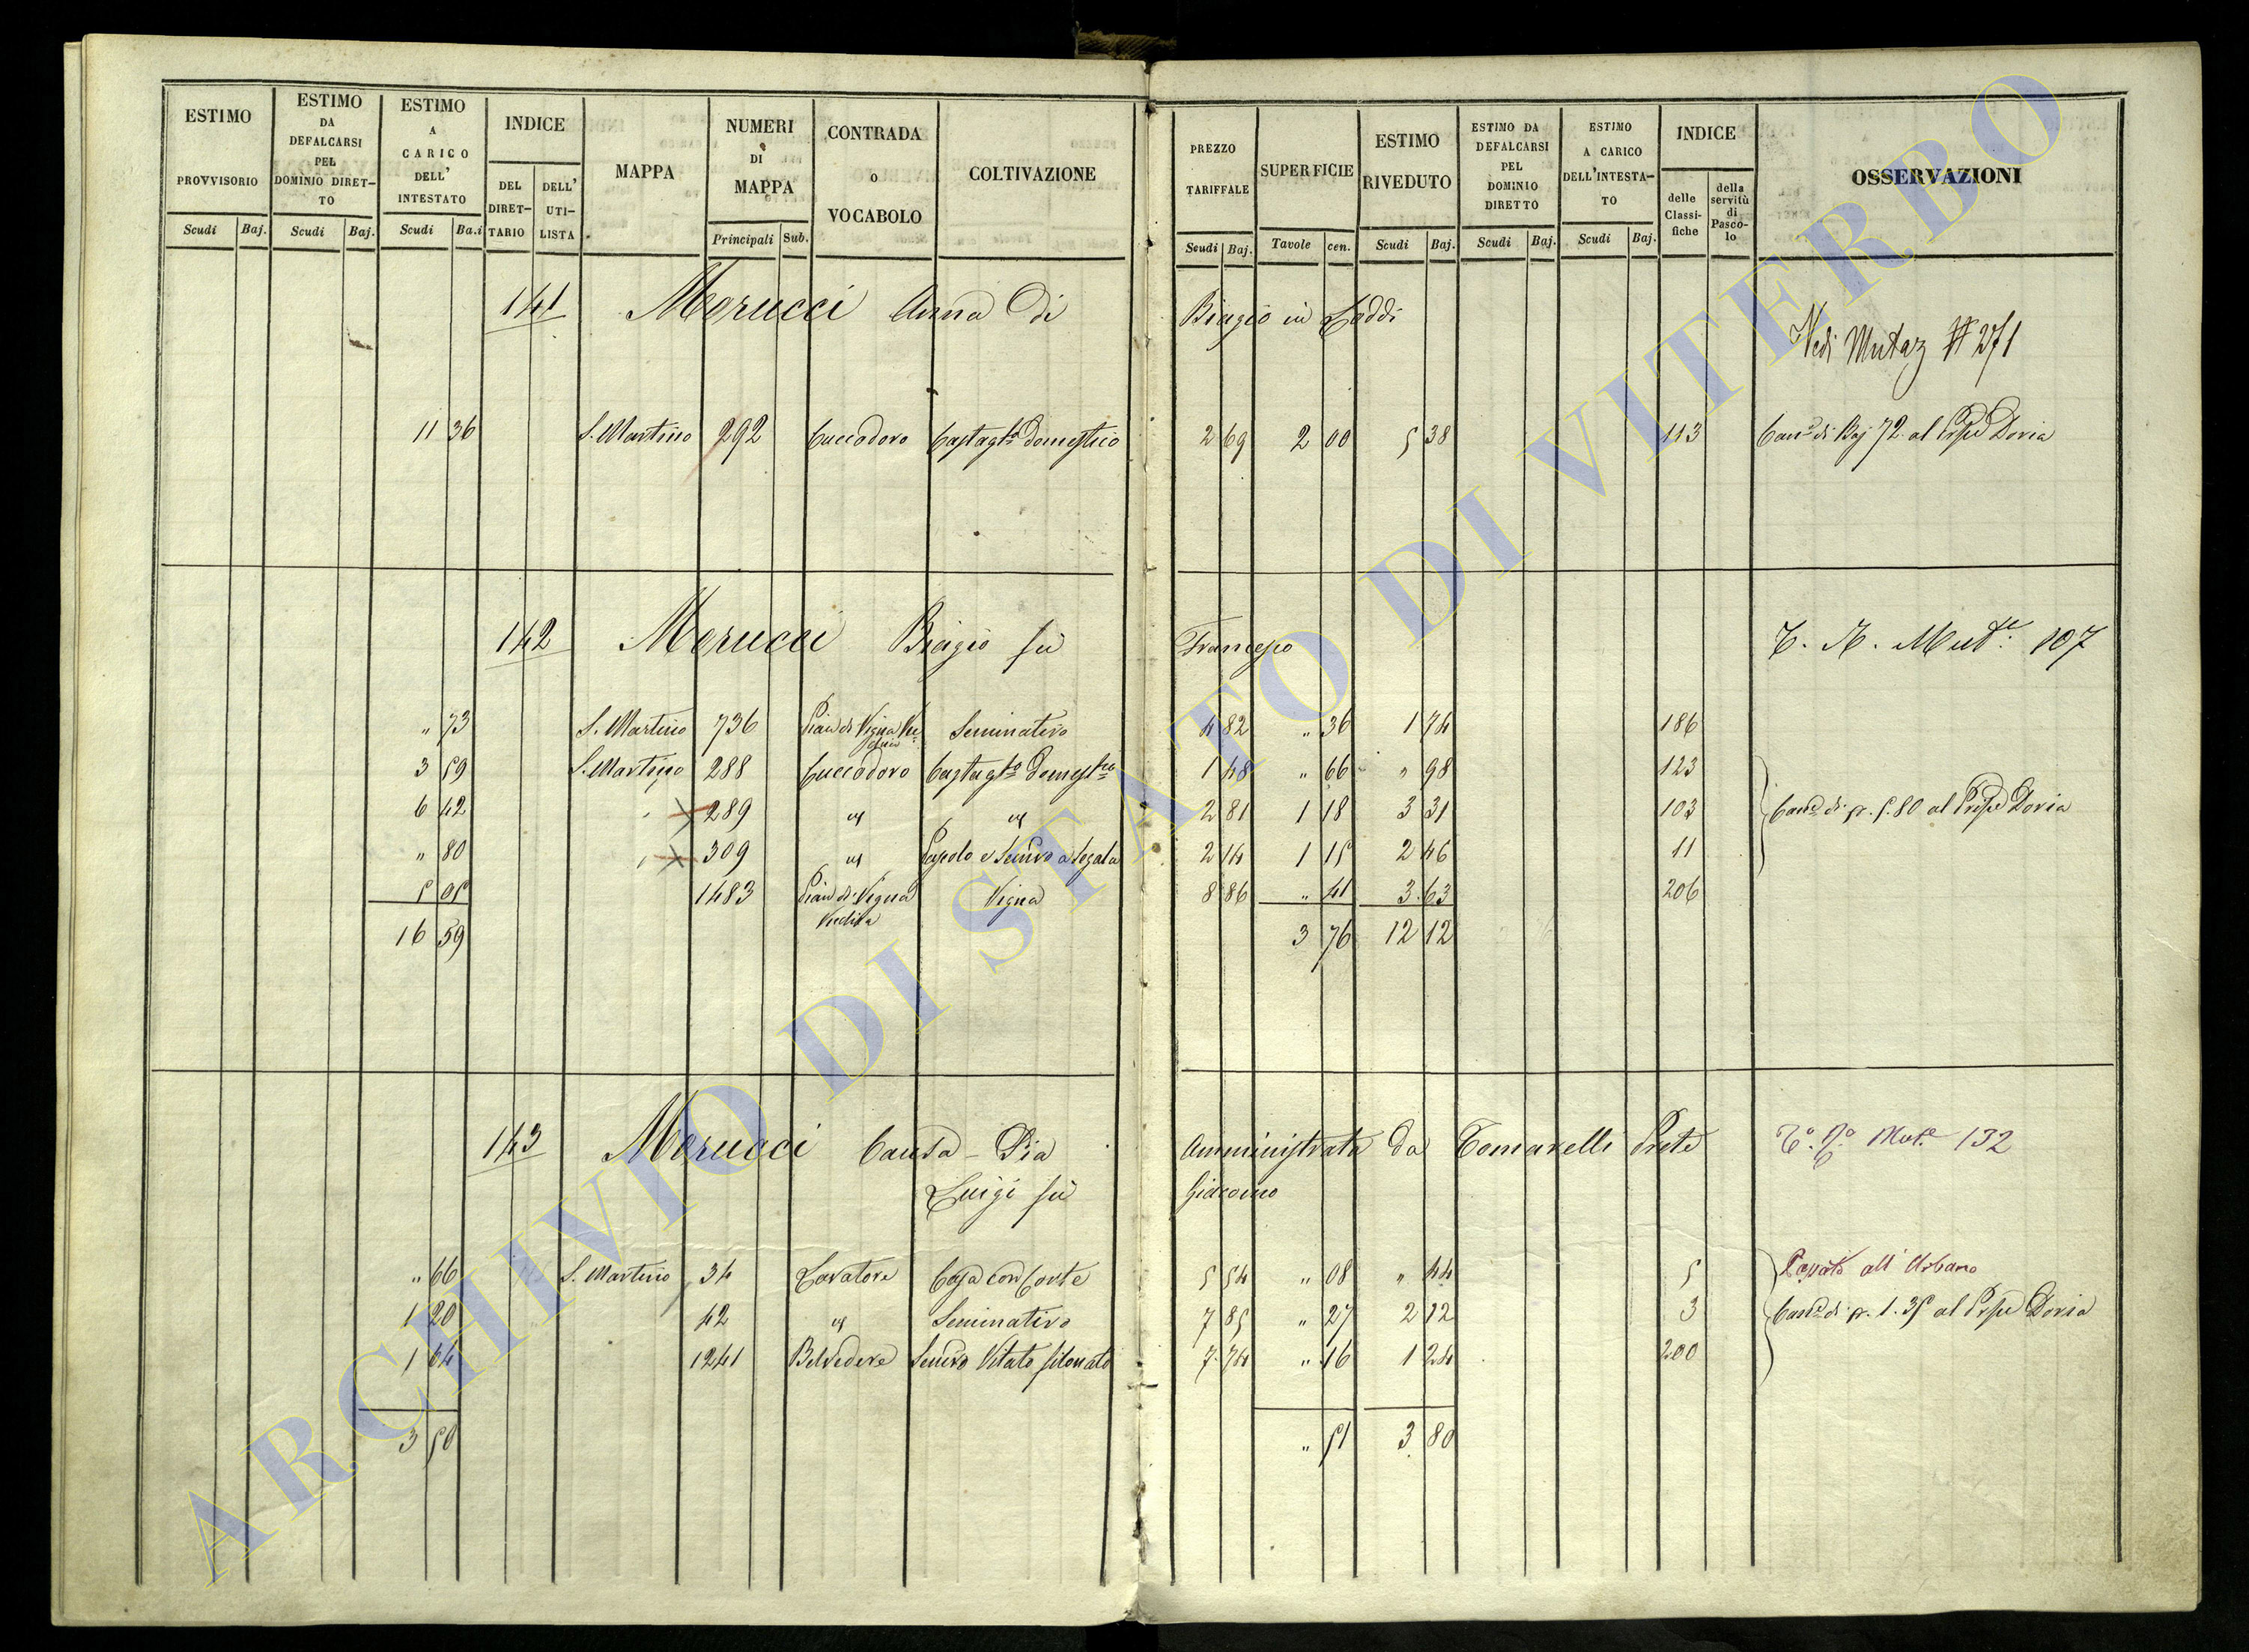 ESTIMO PROVVISORIO Scudi Baj.
ESTIMO DA DEFALCARSI PEL DOMINIO DIRET-TO Scudi Baj.
ESTIMO A CARICO DELL' INTESTATO Scudi Ba.i
INDICE DEL DIRET-TARIO DELL' UTI-LISTA
MAPPA
NUMERI DI MAPPA Principali Sub.
CONTRADA O VOCABOLO
COLTIVAZIONE
PREZZO TARIFFALE Scudi Baj.
SUPERFICIE Tavole cen.
ESTIMO RIVEDUTO Scudi Baj.
ESTIMO DA DEFALCARSI PEL DOMINIO DIRETTO Scudi Baj.
ESTIMO A CARICO DELL'INTESTA-TO Scudi Baj.
INDICE delle Classi-fiche della servitù di Pasco-lo
OSSERVAZIONI
141 Morucci Anna Di Biagio in Loddi
Vedi Mutaz # 271
11 36 S. Martino 292 Cuccodoro Castagto Domestico 2 69 2 00 5 38 113 Cane di Baj 72 al Prpe Doria
142 Morucci Biagio fu Francesco T. N. Mut.e 107
" 73 S. Martino 736 Pian di Vigna Ve 4 82 " 36 1 74 186
Seminativo
3 59 S. Martino 288 Cuccodoro Castagto Domestco 1 48 " 66 " 98 123
6 42 " 289 id id 2 81 1 18 3 31 103 Cane di p. 5.80 al Prpe Doria
" 80 " 309 id Pascolo e Semivo a Segala 2 14 1 15 2 46 11
5 05 1483 Pian di Vigna Vigna 8 86 " 41 3.63 206
16 59 3 76 12 12
143 Morucci Causa - Pia Amministrata Da Tomarelli Prete
Luigi fu Giacomo
Mut.e 132
" 66 S. Martino 34 Lavatore Casa con Corte 5 54 " 08 " 44 5 Passato all' Urbano
1 20 42 id Seminativo 7 85 " 27 2 12 3 Cane di p. 1.35 al Prpe Doria
1 64 1241 Belvedere Semivo Vitato 7.74 " 16 1 24 200
3 50 " 51 3 80
ARCHIVIO DI STATO DI VITERBO